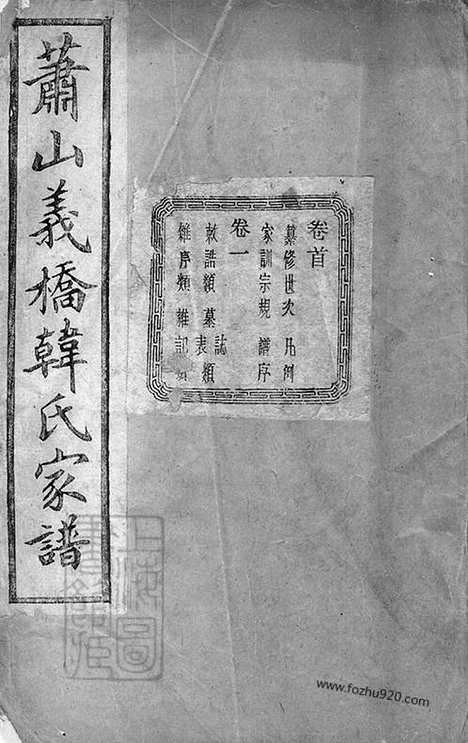 蕭山義橋韓氏家譜
卷首
纂修世次 凡例
家訓宗規 譜序
卷一
敕誥類墓誌表類
雜序類雜記類
上海圖書館藏
www.fozhu920.com